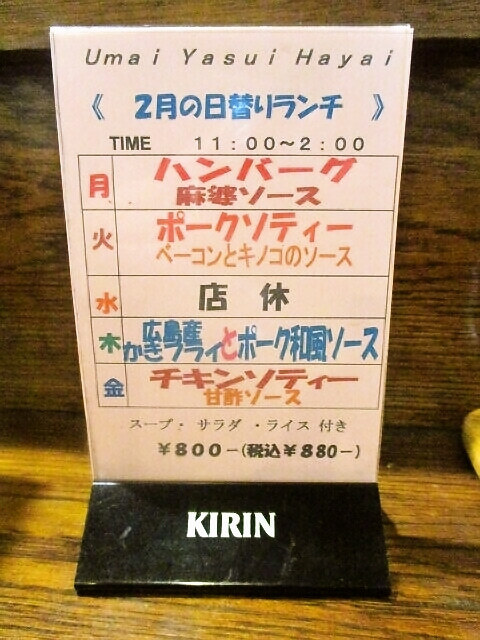 Umai Yasui Hayai
《 2月の日替りランチ 》
TIME 11:00～2:00
月 ハンバーグ
麻婆ソース
火 ポークソティー
ベーコンとキノコのソース
水 店休
木 広島産
かきフライとポーク和風ソース
金 チキンソティー
甘酢ソース
スープ・サラダ・ライス付き
¥800-(税込¥880-)
KIRIN